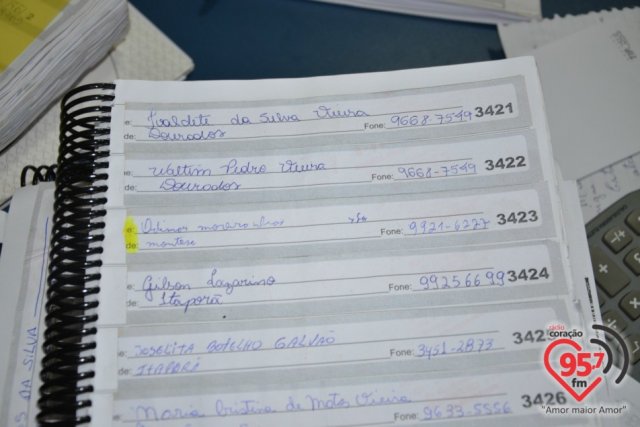 e: Ivaldete da Silva Vieira
de: Dourados Fone: 9668 7549 3421
e: Waltim Pedro Vieira
de: Dourados Fone: 9668-7549 3422
e:
de: Fone: 9921-6227 3423
e: Gilson Lazarino
de: Itaporã Fone: 99256699 3424
e: JOSELITA BOTELHO GALVÃO
de: ITAPORÃ Fone: 3451-2873
Maria Cristina de Matos Vieira
Fone: 9633-5556 3426
DA SILVA
rádio
coração
95.7
fm
"Amor maior Amor"